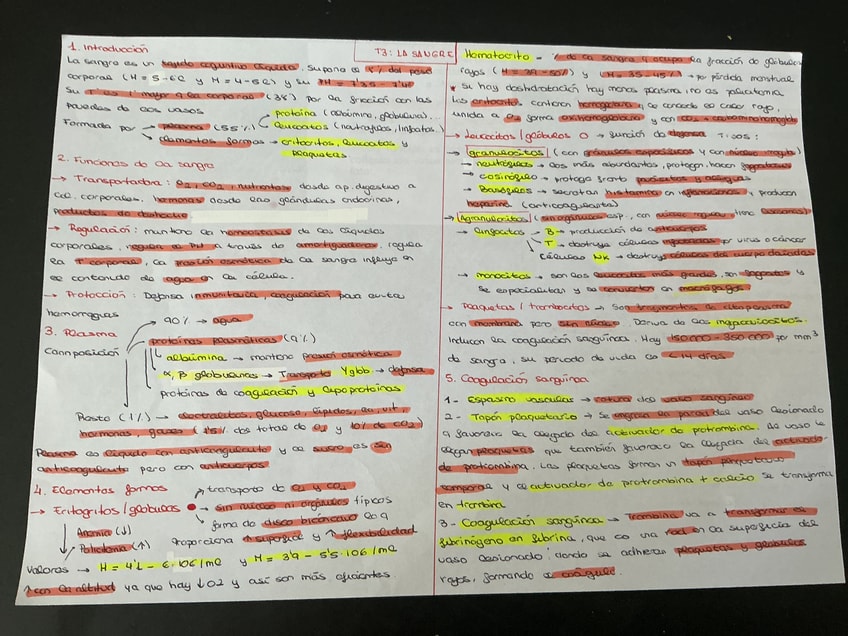 T3: LA SANGRE
1. Introducción
La sangre es un tejido conjuntivo líquido, supone el 8% del peso
corporal (H = 5-6l y M = 4-5l) y su PH = 7'35 - 7'45
Su Tª es 1º mayor q la corporal (38º) por la fricción con las
paredes de los vasos
Formada por → plasma (55%) proteína (albúmina, globulina..)
leucocitos (neutrófilos, linfocitos..)
elementos formes → eritrocitos, leucocitos y
plaquetas
2. Funciones de la sangre
→ Transportadora: O2, CO2, nutrientes desde ap. digestivo a
cél. corporales, hormonas desde las glándulas endocrinas,
productos de deshecho
→ Regulación: mantiene la homeostasis de los líquidos
corporales, regula el PH a través de amortiguadores, regula
la Tª corporal, la presión osmótica de la sangre influye en
el contenido de agua en la célula.
→ Protección: Defensa inmunitaria, coagulación para evitar
hemorragias
3. Plasma
Composición
90% → agua
proteínas plasmáticas (9%)
albúmina → mantiene presión osmótica
α, β globulinas → Transporte Y gbb → defensa
proteínas de coagulación y lipoproteínas
Resto (1%) → electrolitos, glucosa, lípidos, aa, vit,
hormonas, gases (1'5% del total de O2 y 10% de CO2)
Plasma es líquido con anticoagulante y el suero es sin
anticoagulante pero con anticuerpos
4. Elementos formes
→ Eritrocitos/glóbulos ●
transporte de O2 y CO2
sin núcleo ni orgánulos típicos
forma de disco bicóncavo lo q
proporciona ↑ superficie y ↑ flexibilidad
Anemia (↓)
Policitemia (↑)
Valores → H = 4'2 - 6·106/ml y M = 3'9 - 5'5·106/ml
↑ con la altitud ya que hay ↓ O2 y así son más eficientes
Hematocrito = % de la sangre q ocupa la fracción de glóbulos
rojos (H = 39-50%) y (M = 35-45%) → por pérdida menstrual
* Si hay deshidratación hay menos plasma, no es policitemia
Los eritrocitos contienen hemoglobina y le concede el color rojo,
unida a O2 forma oxihemoglobina y con CO2 = carbaminohemoglob
→ Leucocitos/glóbulos O → función de defensa Tipos:
→ granulocitos (con gránulos específicos y con núcleo irregular)
→ neutrófilos → los más abundantes, protegen, hacen fagocitosis
→ Eosinófilo → protege frente parásitos y alergias
→ Basófilos → secretan histamina en inflamaciones y producen
heparina (anticoagulante)
→ Agranulocitos (sin gránulos esp., con núcleo regular, tiene lisosomas)
→ linfocitos → B → producción de anticuerpos
T → destruye células infectadas por virus o cáncer
Células NK → destruye células del cuerpo dañadas
→ monocitos → son los leucocitos más grandes, son fagocitos y
se especializan y se convierten en macrófagos
→ Plaquetas / trombocitos → Son fragmentos de citoplasma
con membrana pero sin núcleo. Deriva de los megacariocitos.
Inducen la coagulación sanguínea. Hay 150.000 - 350.000 por mm3
de sangre, su periodo de vida es < 14 días
5. Coagulación sanguínea
1- Espasmo vascular → rotura del vaso sanguíneo
2- Tapón plaquetario → Se engrosa la pared del vaso lesionado
q favorece la llegada del activador de protrombina. Al vaso le
llegan plaquetas que también favorece la llegada del activador
de protrombina. Las plaquetas forman un tapón plaquetario
temporal y el activador de protrombina + calcio se transforma
en trombina
3- Coagulación sanguínea → Trombina va a transformar el
fibrinógeno en fibrina, que es una red en la superficie del
vaso lesionado donde se adhieren plaquetas y glóbulos
rojos, formando el coágulo.